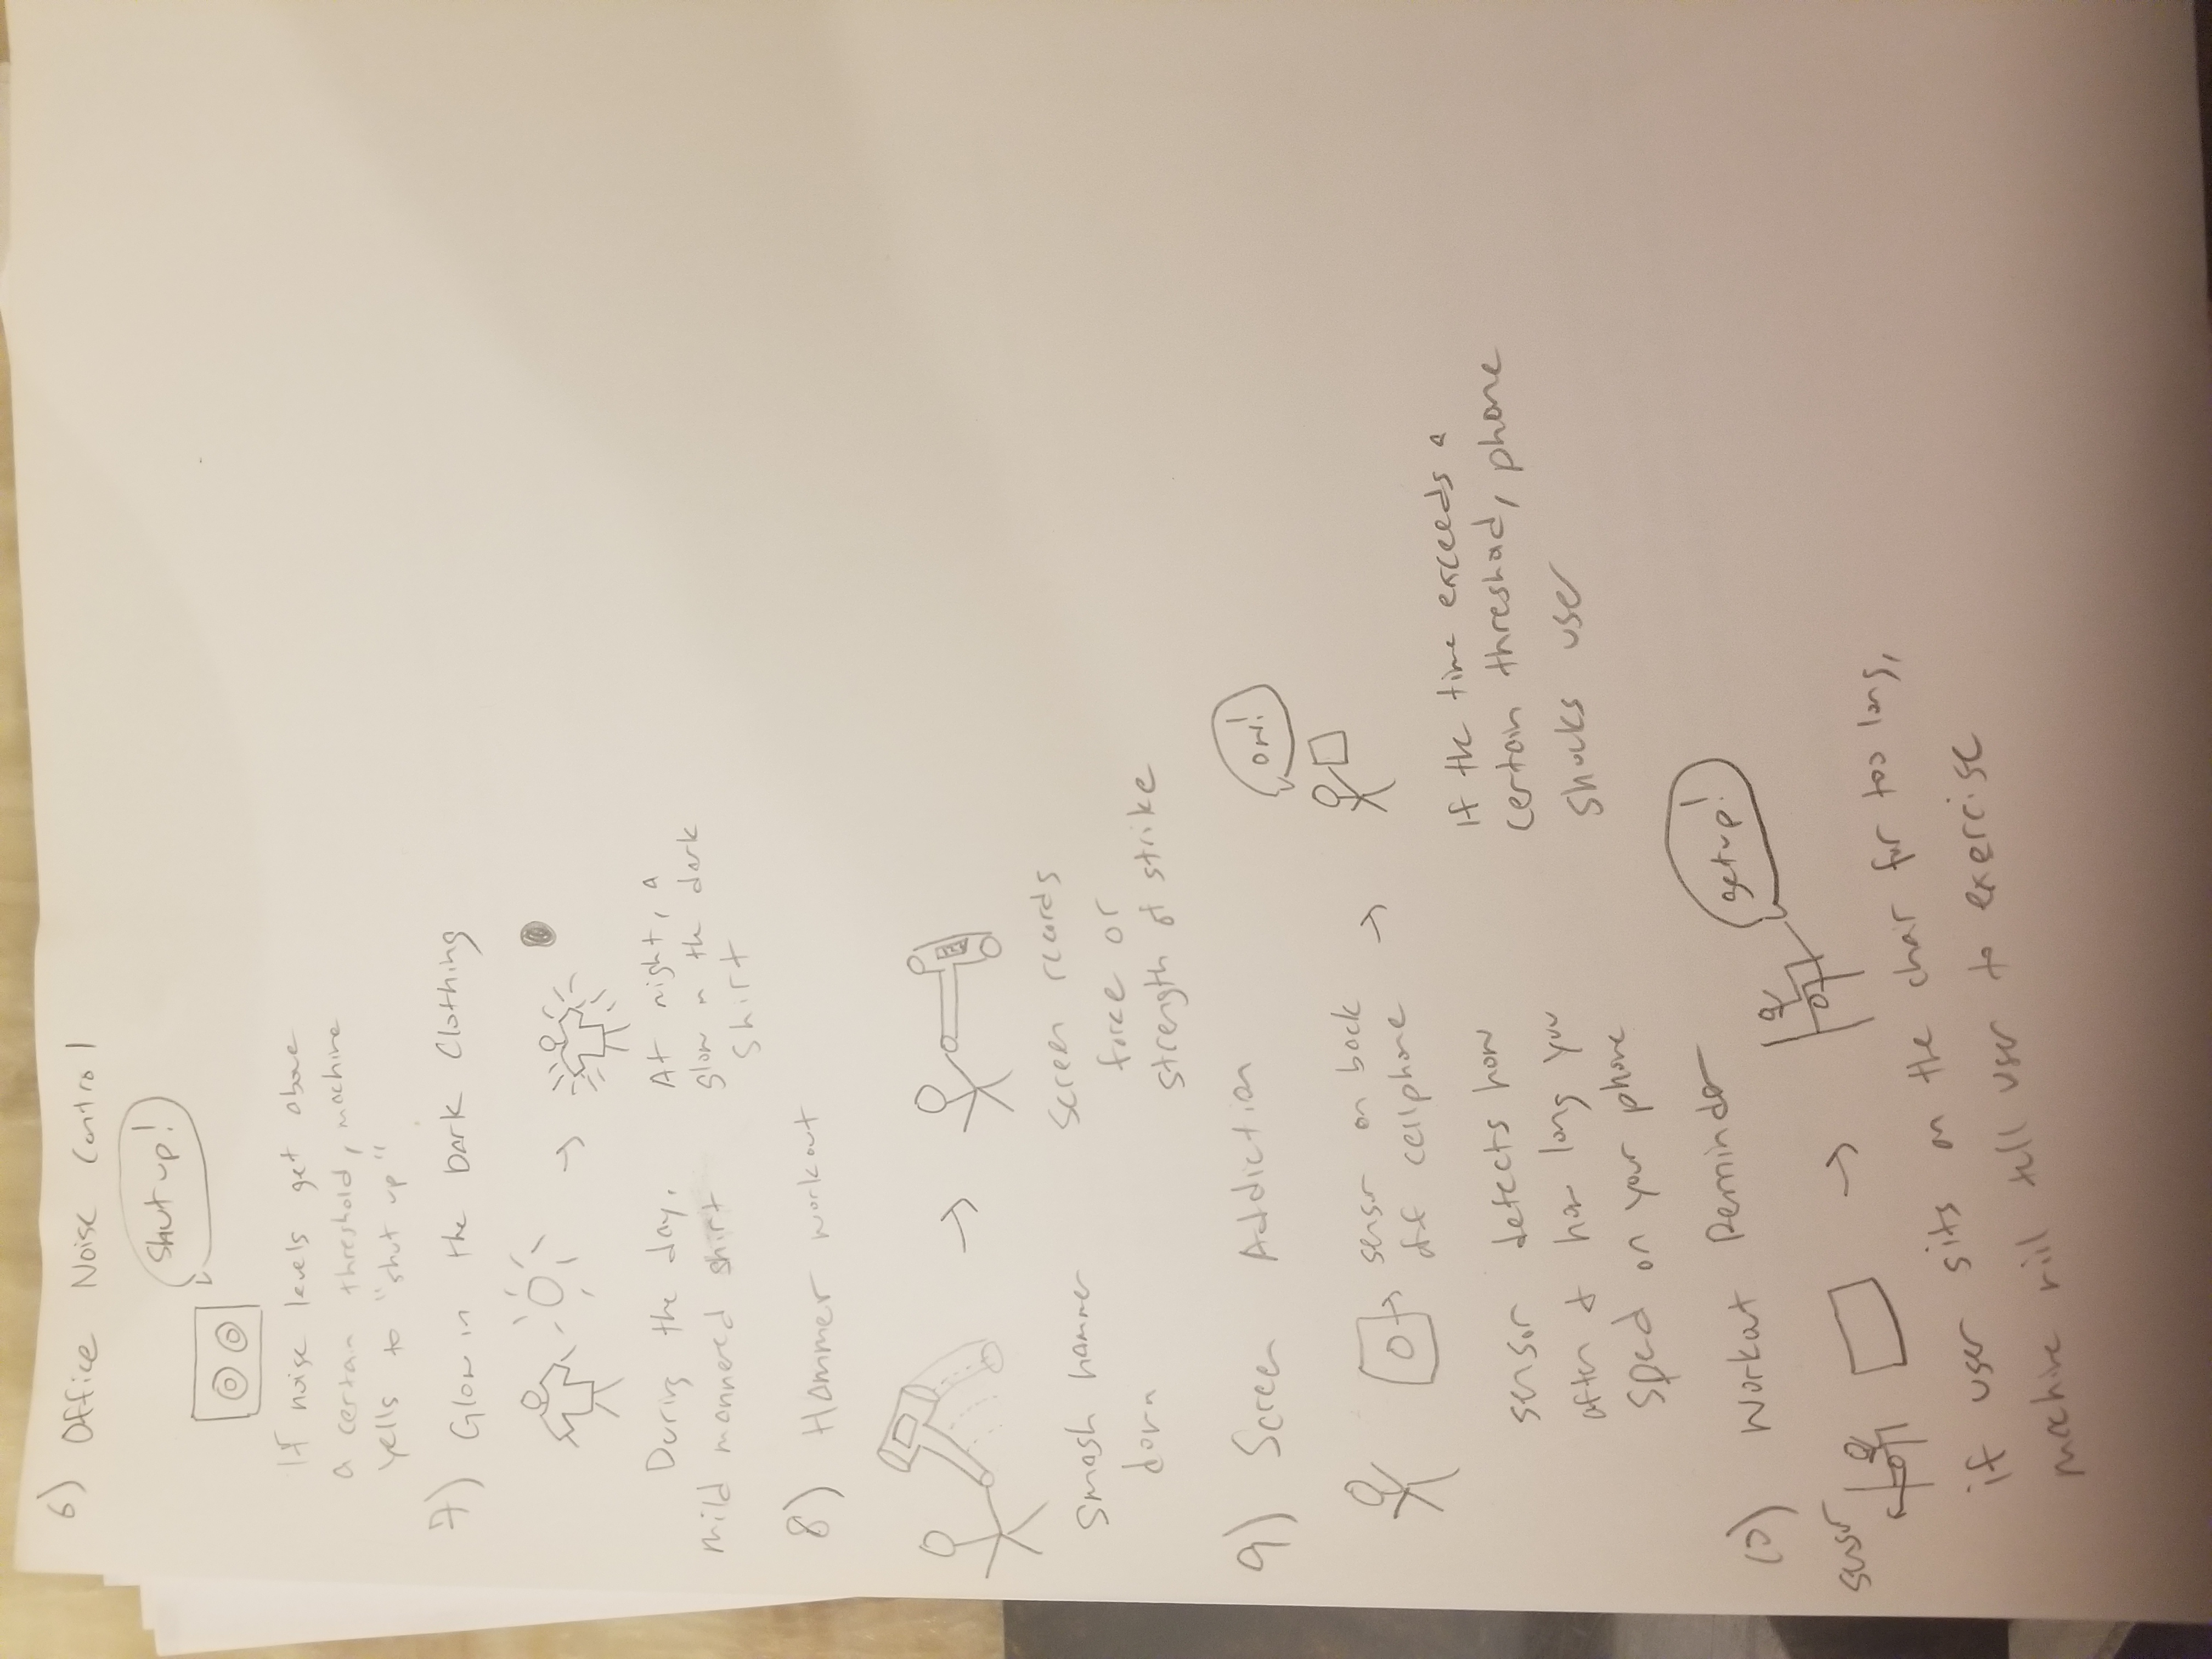 6) Office Noise Control
Shut up!
If noise levels get above
a certain threshold, machine
yells to "shut up"
7) Glow in the Dark Clothing
During the day,
mild mannered shirt
At night, a
glow in the dark
shirt
8) Hammer workout
Smash hammer
down
Screen records
force or
strength of strike
9) Screen Addiction
ow!
sensor on back
of cellphone
sensor detects how
often & how long you
spend on your phone
If the time exceeds a
certain threshold, phone
shocks user
10) Workout Reminder
get up!
sensor
if user sits on the chair for too long,
machine will tell user to exercise